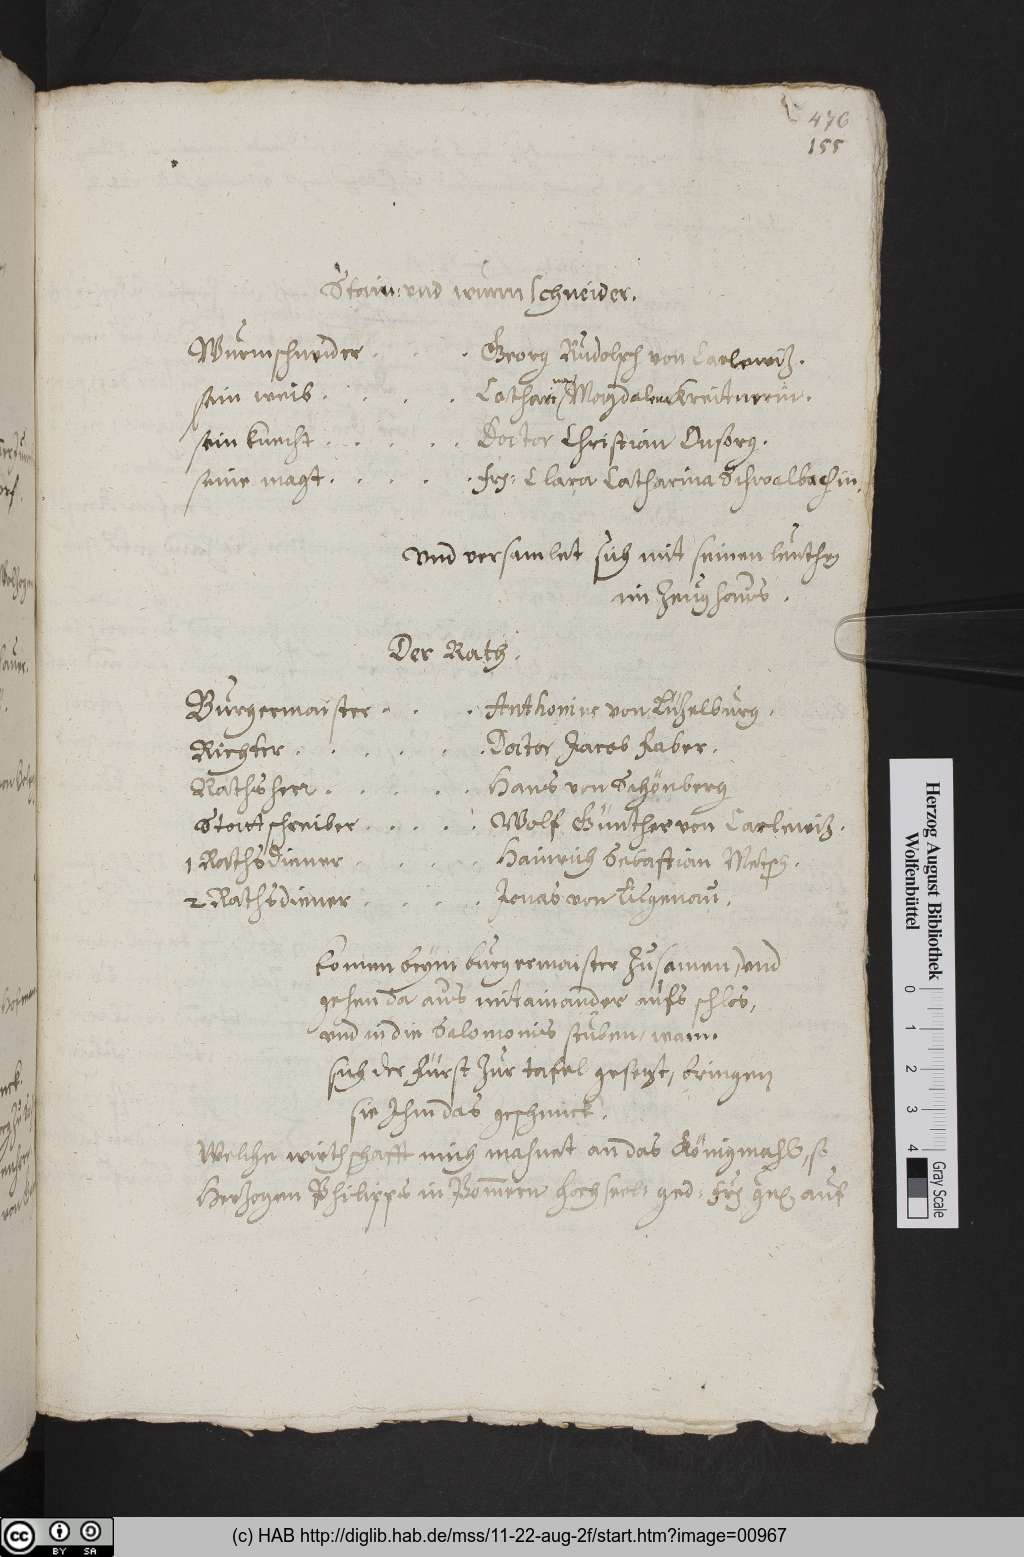 476
155
Stain: vnd wurm schneider.
Wurmschneider . . . . Georg Rudolph von Carlewiz.
sein weib . . . . Cathari Magdalena Kreitnerin.
sein knecht . . . . . Doctor Christian Onsorg.
seine magt . . . . . frl: Clara Catharina Schwalbachin.
vnd versamlet sich mit seinen leuthen
im Zeughaws.
Der Rath.
Burgermaister . . . Anthonius von Lüzelburg.
Richter . . . . . . Doctor Jacob Faber.
Rathsherr . . . . . Hans von Schönberg
Stattschreiber . . . . . Wolf Günther von Carlewiz.
1 Rathsdiener . . . . Hainrich Sebastian Metsch.
2 Rathsdiener . . . . Jonas von Lilgenau.
komen beym burgermaister zusamen, vnd
gehen da aus mitainander aufs schlos,
vnd in die Salomonis stuben, wann
sich der Fürst zur tafel gesetzt, bringen
sie Ihm das geschenck.
Welche wirthschafft mich mahnet an das Königmahl, so
Herzogen Philipps in Pommern hochseel: ged: auf
Herzog August Bibliothek
Wolfenbüttel
0 1 2 3 4
Gray Scale
cc BY SA
(c) HAB http://diglib.hab.de/mss/11-22-aug-2f/start.htm?image=00967